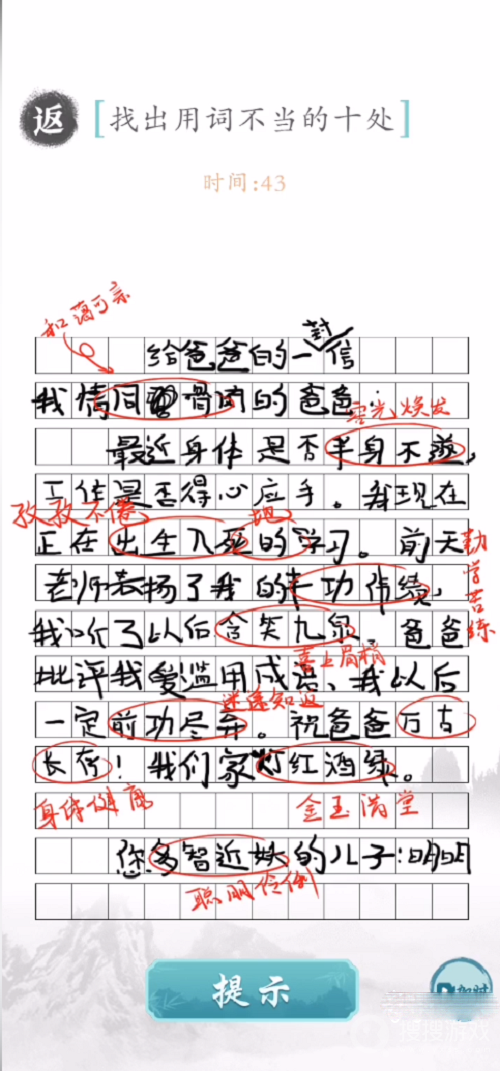 返
[找出用词不当的十处]
时间:43
和蔼可亲
封
给爸爸的一信
我情同骨肉的爸爸:
容光焕发
最近身体是否半身不遂,
工作是否得心应手。我现在
孜孜不倦
地
正在出生入死的学习。前天
勤学苦练
老师表扬了我的丰功伟绩,
我听了以后含笑九泉。爸爸
喜上眉梢
批评我爱滥用成语,我以后
迷途知返
一定前功尽弃。祝爸爸万古
长存!我们家灯红酒绿。
身体健康
金玉满堂
您多智近妖的儿子:明明
聪明伶俐
提示